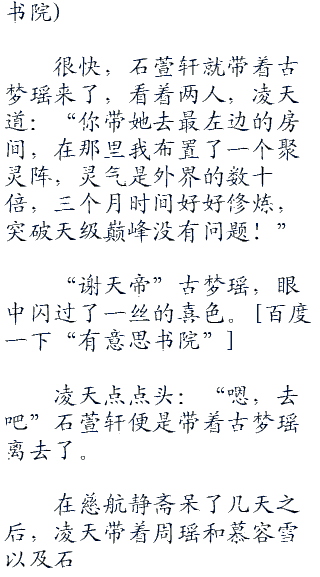 书院)
很快，石萱轩就带着古
梦瑶来了，看着两人，凌天
道：“你带她去最左边的房
间，在那里我布置了一个聚
灵阵，灵气是外界的数十
倍，三个月时间好好修炼，
突破天级巅峰没有问题！”
“谢天帝”古梦瑶，眼
中闪过了一丝的喜色。[百度
一下“有意思书院”]
凌天点点头：“嗯，去
吧”石萱轩便是带着古梦瑶
离去了。
在慈航静斋呆了几天之
后，凌天带着周瑶和慕容雪
以及石